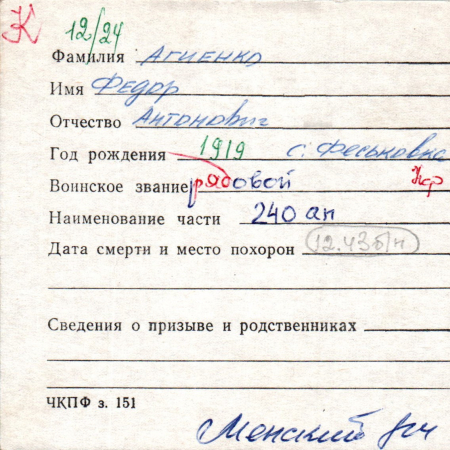 К 12/24
Фамилия Агиенко
Имя Федор
Отчество Антонович
Год рождения 1919 с. Феськовка
Воинское звание рядовой Укр
Наименование части 240 ап
Дата смерти и место похорон 12.43 б/н
Сведения о призыве и родственниках
ЧКПФ з. 151
Менский